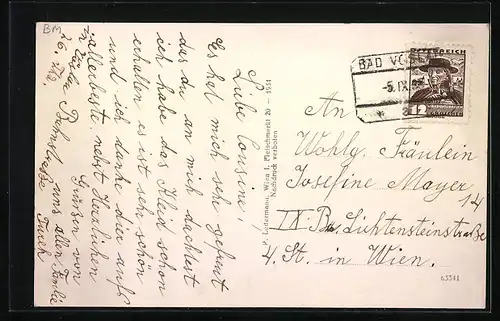 BM
Liebe Cousine!
Es hat mich sehr gefreut
das du an mich dachtest
ich habe das Kleid schon
erhalten es ist sehr schön
und ich danke dier aufs
allerbeste. nebst Herzlichen
Grüßen von
uns allen Familie
Bahnstraße
P. Ledermann, Wien I, Fleischmarkt 20 - 1931
Nachdruck verboten
BAD
-5. IX
ÖSTERREICH
12
An
Wohlg. Fräulein
Josefine Mayer
IX. Bez. Lichtensteinstraße 14
4. St. in Wien.
63341